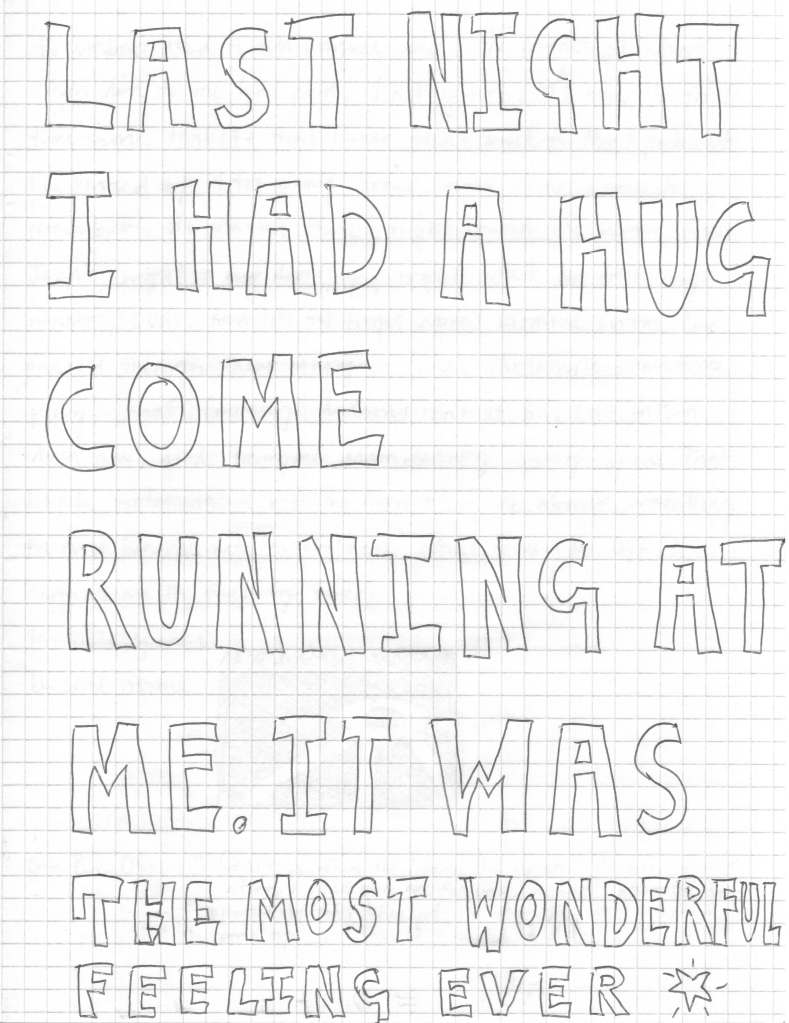 LAST NIGHT
I HAD A HUG
COME
RUNNING AT
ME. IT WAS
THE MOST WONDERFUL
FEELING EVER